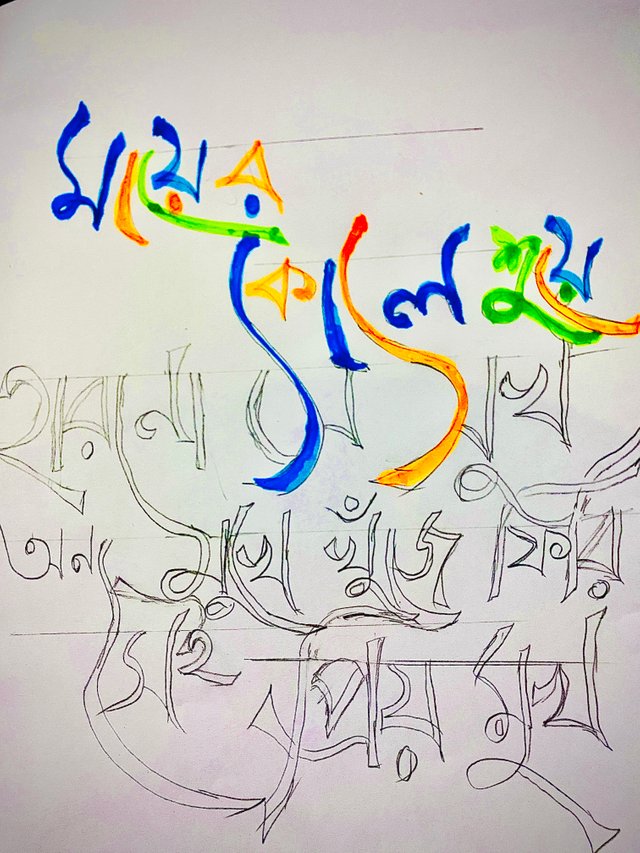 মায়ের
কোলে শুয়ে
হারানো
অন্য মুখে খুঁজে ফিরি
সেই প্রিয় মুখ